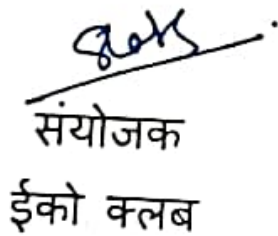 संयोजक
ईको क्लब